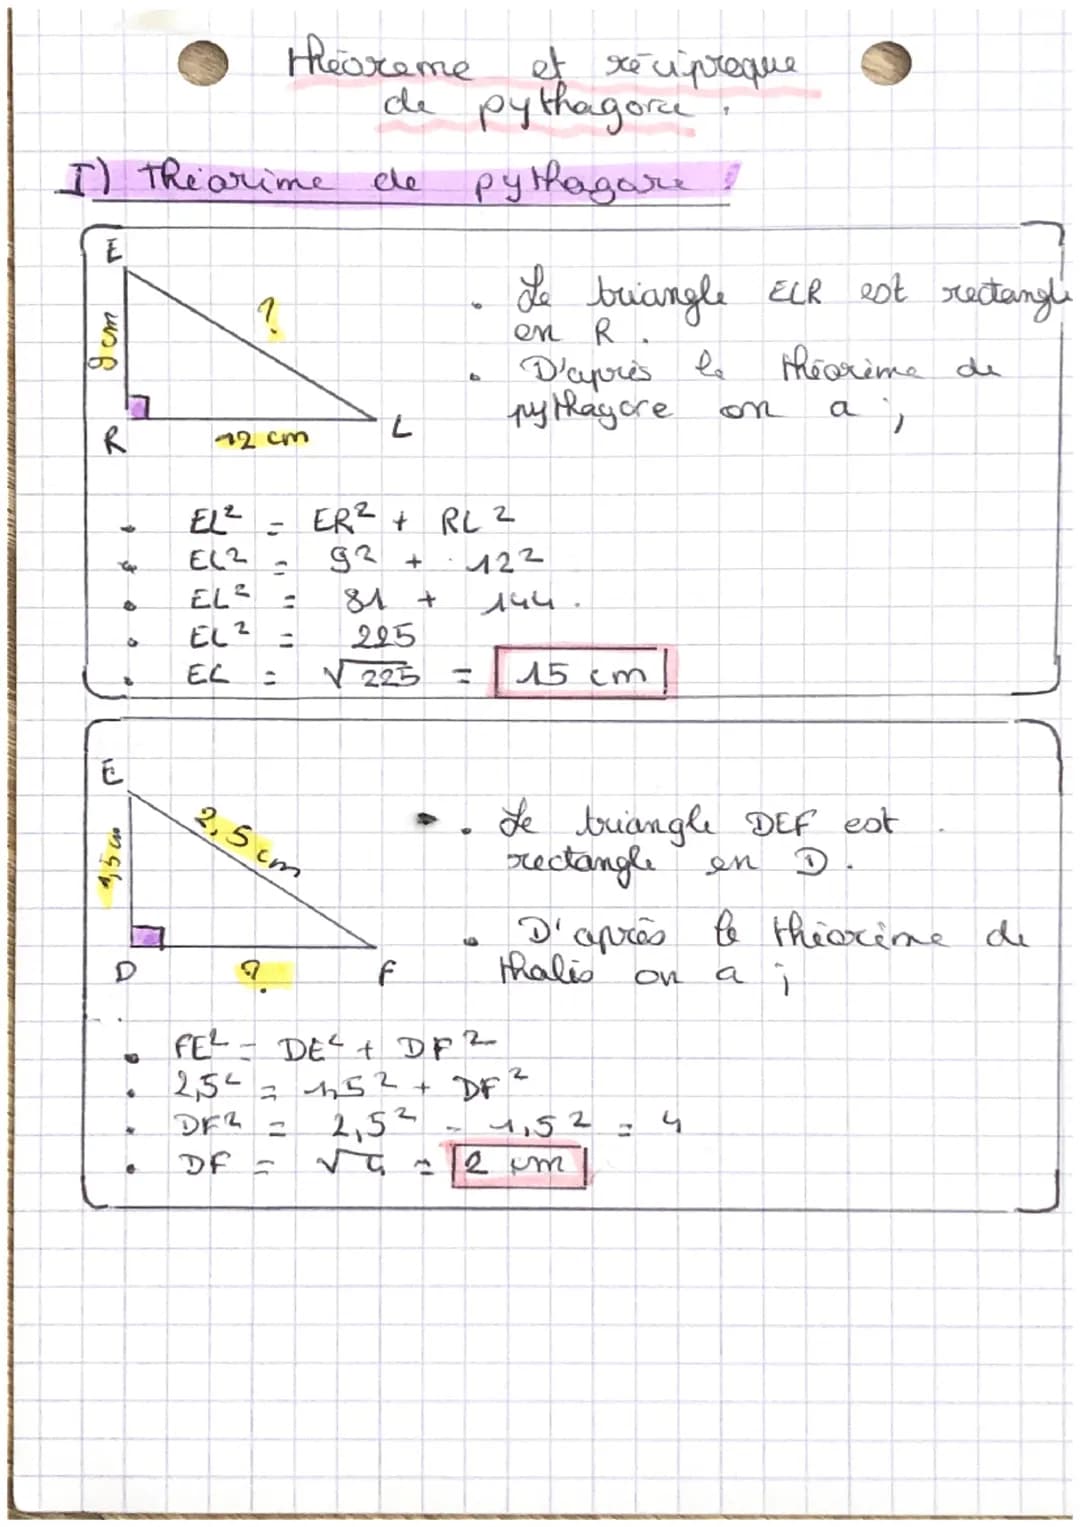 théoreme et réciproque
de pythagore.
I) Théorème de pythagore :
E
?
9 cm
R
12 cm
L
• Le triangle ELR est rectangle
en R.
• D'après le théorème de
pythagore on a ;
• EL² = ER² + RL²
• EL² = 9² + 12²
• EL² = 81 + 144.
• EL² = 225
• EL = √225 = 15 cm
E
2,5 cm
1,5 cm
D
?
F
• Le triangle DEF est
rectangle en D.
• D'après le théorème de
thalès on a ;
• FE² = DE² + DF²
• 2,5² = 1,5² + DF²
• DF² = 2,5² - 1,5² = 4
• DF = √4 = 2 cm